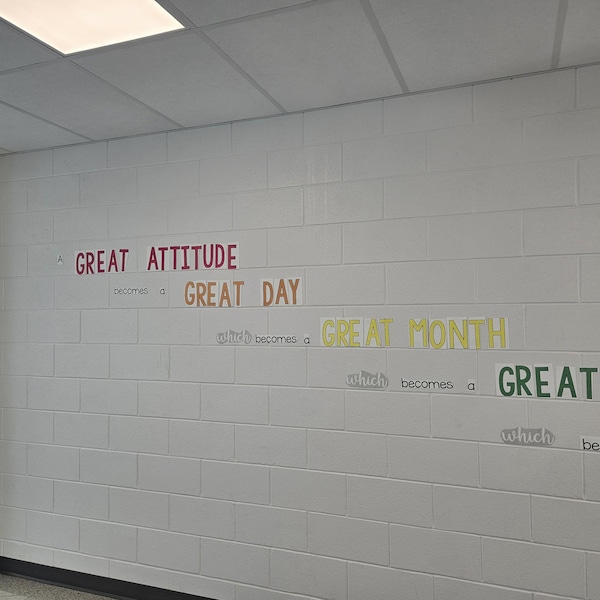 A GREAT ATTITUDE
becomes a GREAT DAY
which becomes a GREAT MONTH
which becomes a GREAT
which be